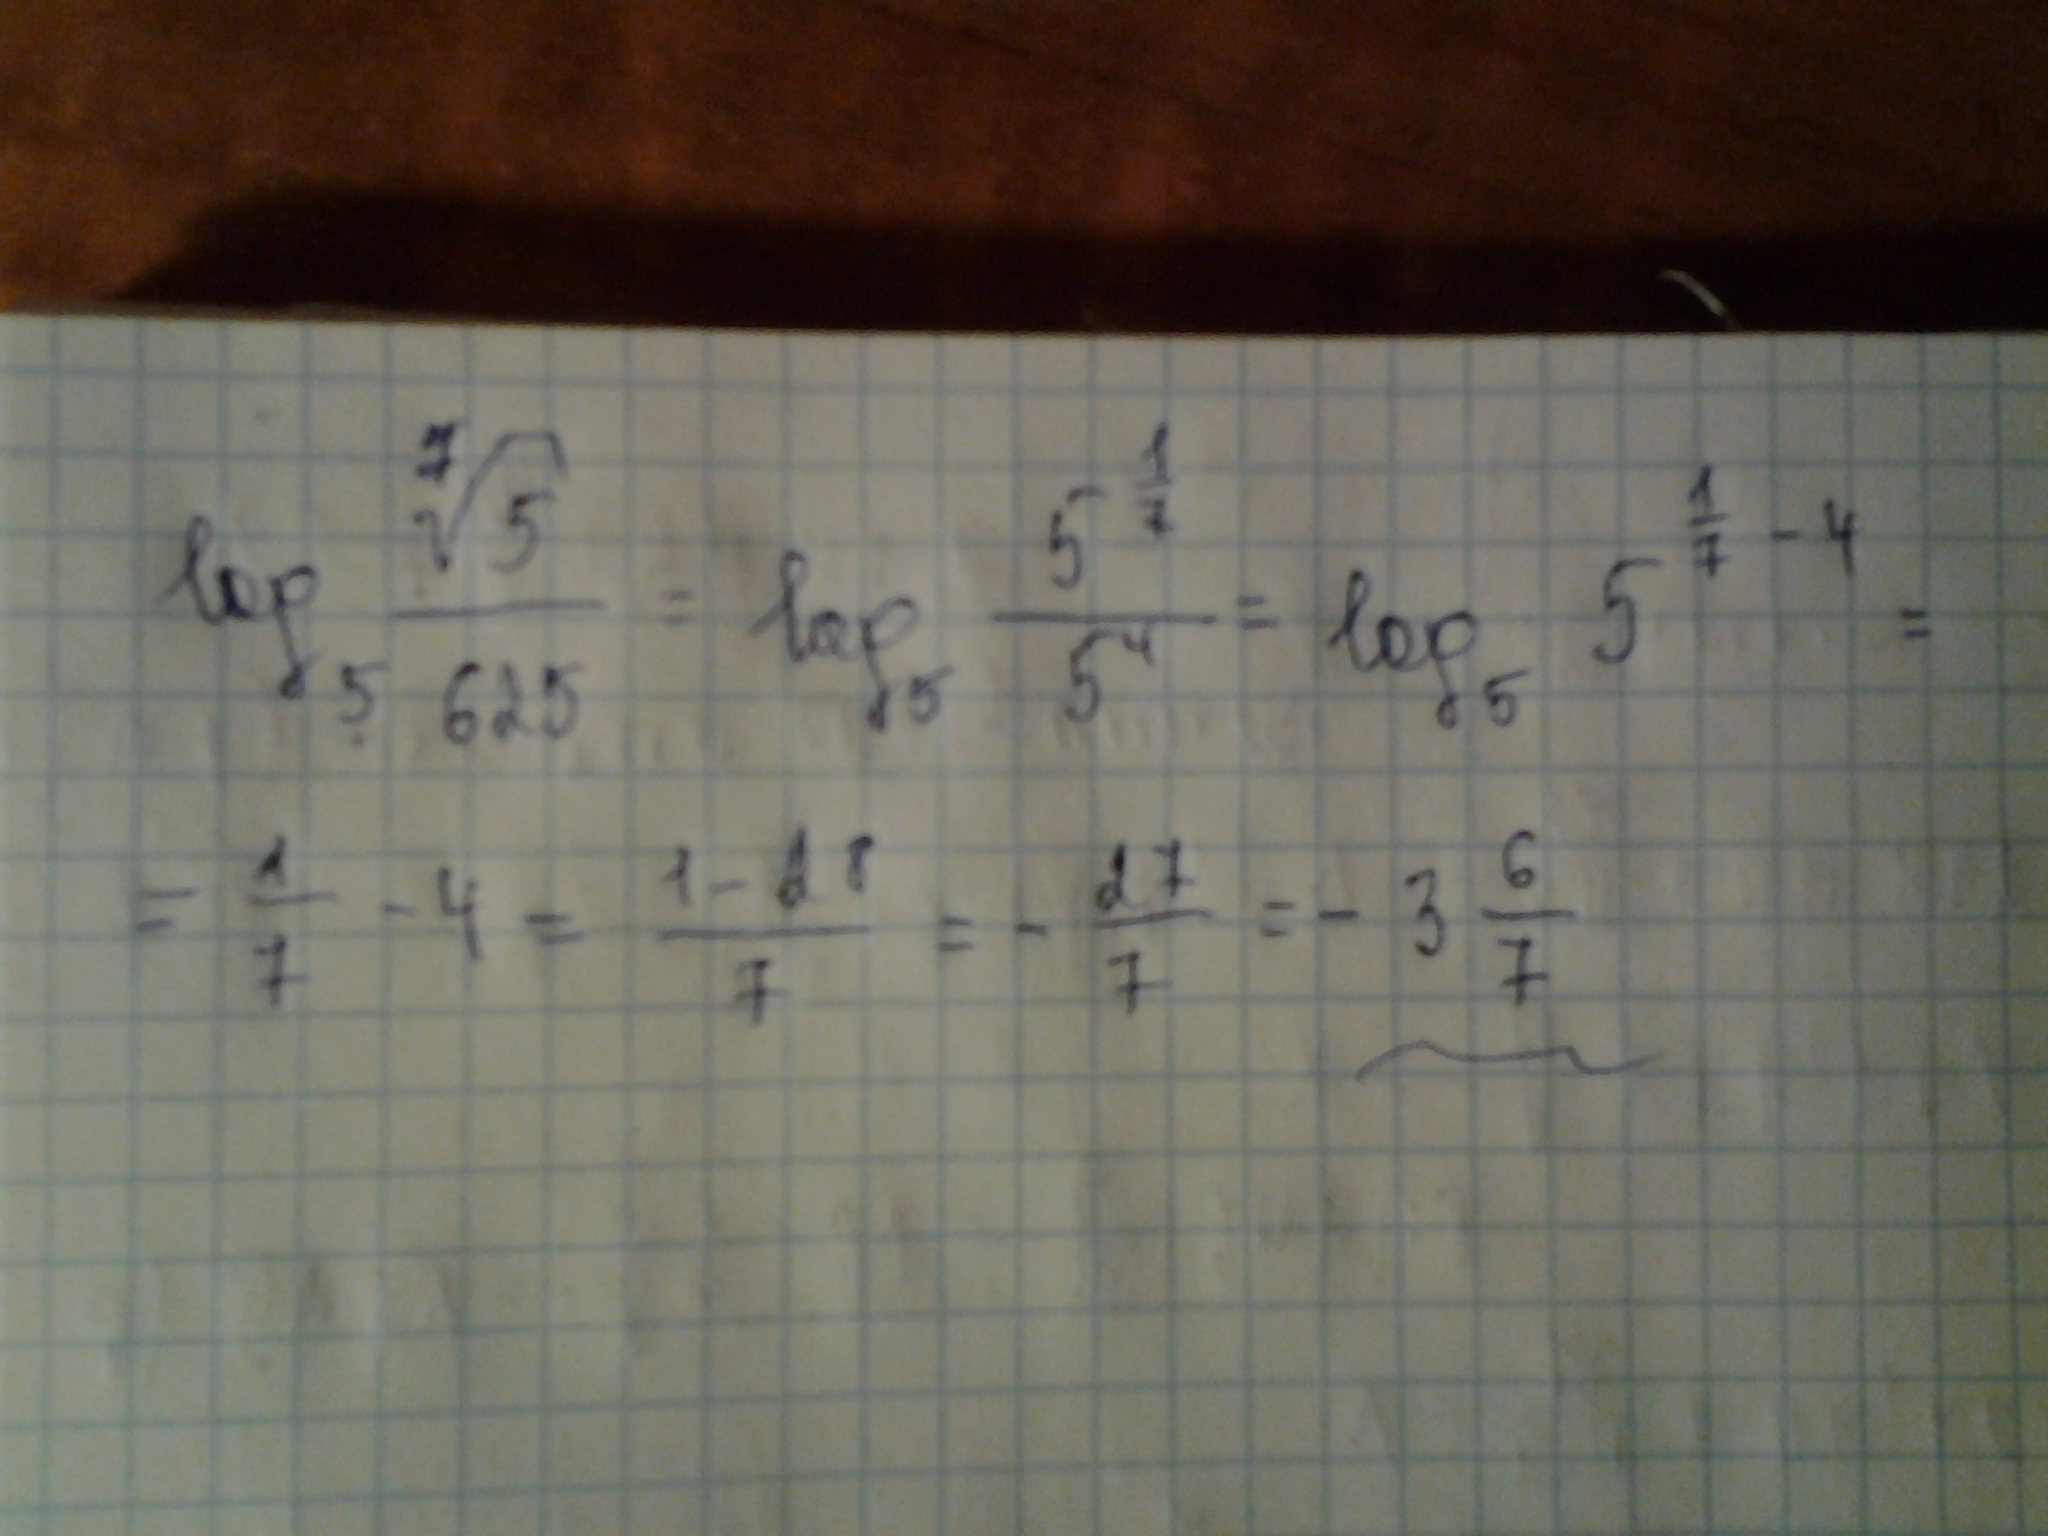 log₅ ⁷√5 / 625 = log₅ 5^(1/7) / 5⁴ = log₅ 5^(1/7 - 4) =
= 1/7 - 4 = (1 - 28)/7 = - 27/7 = - 3 6/7